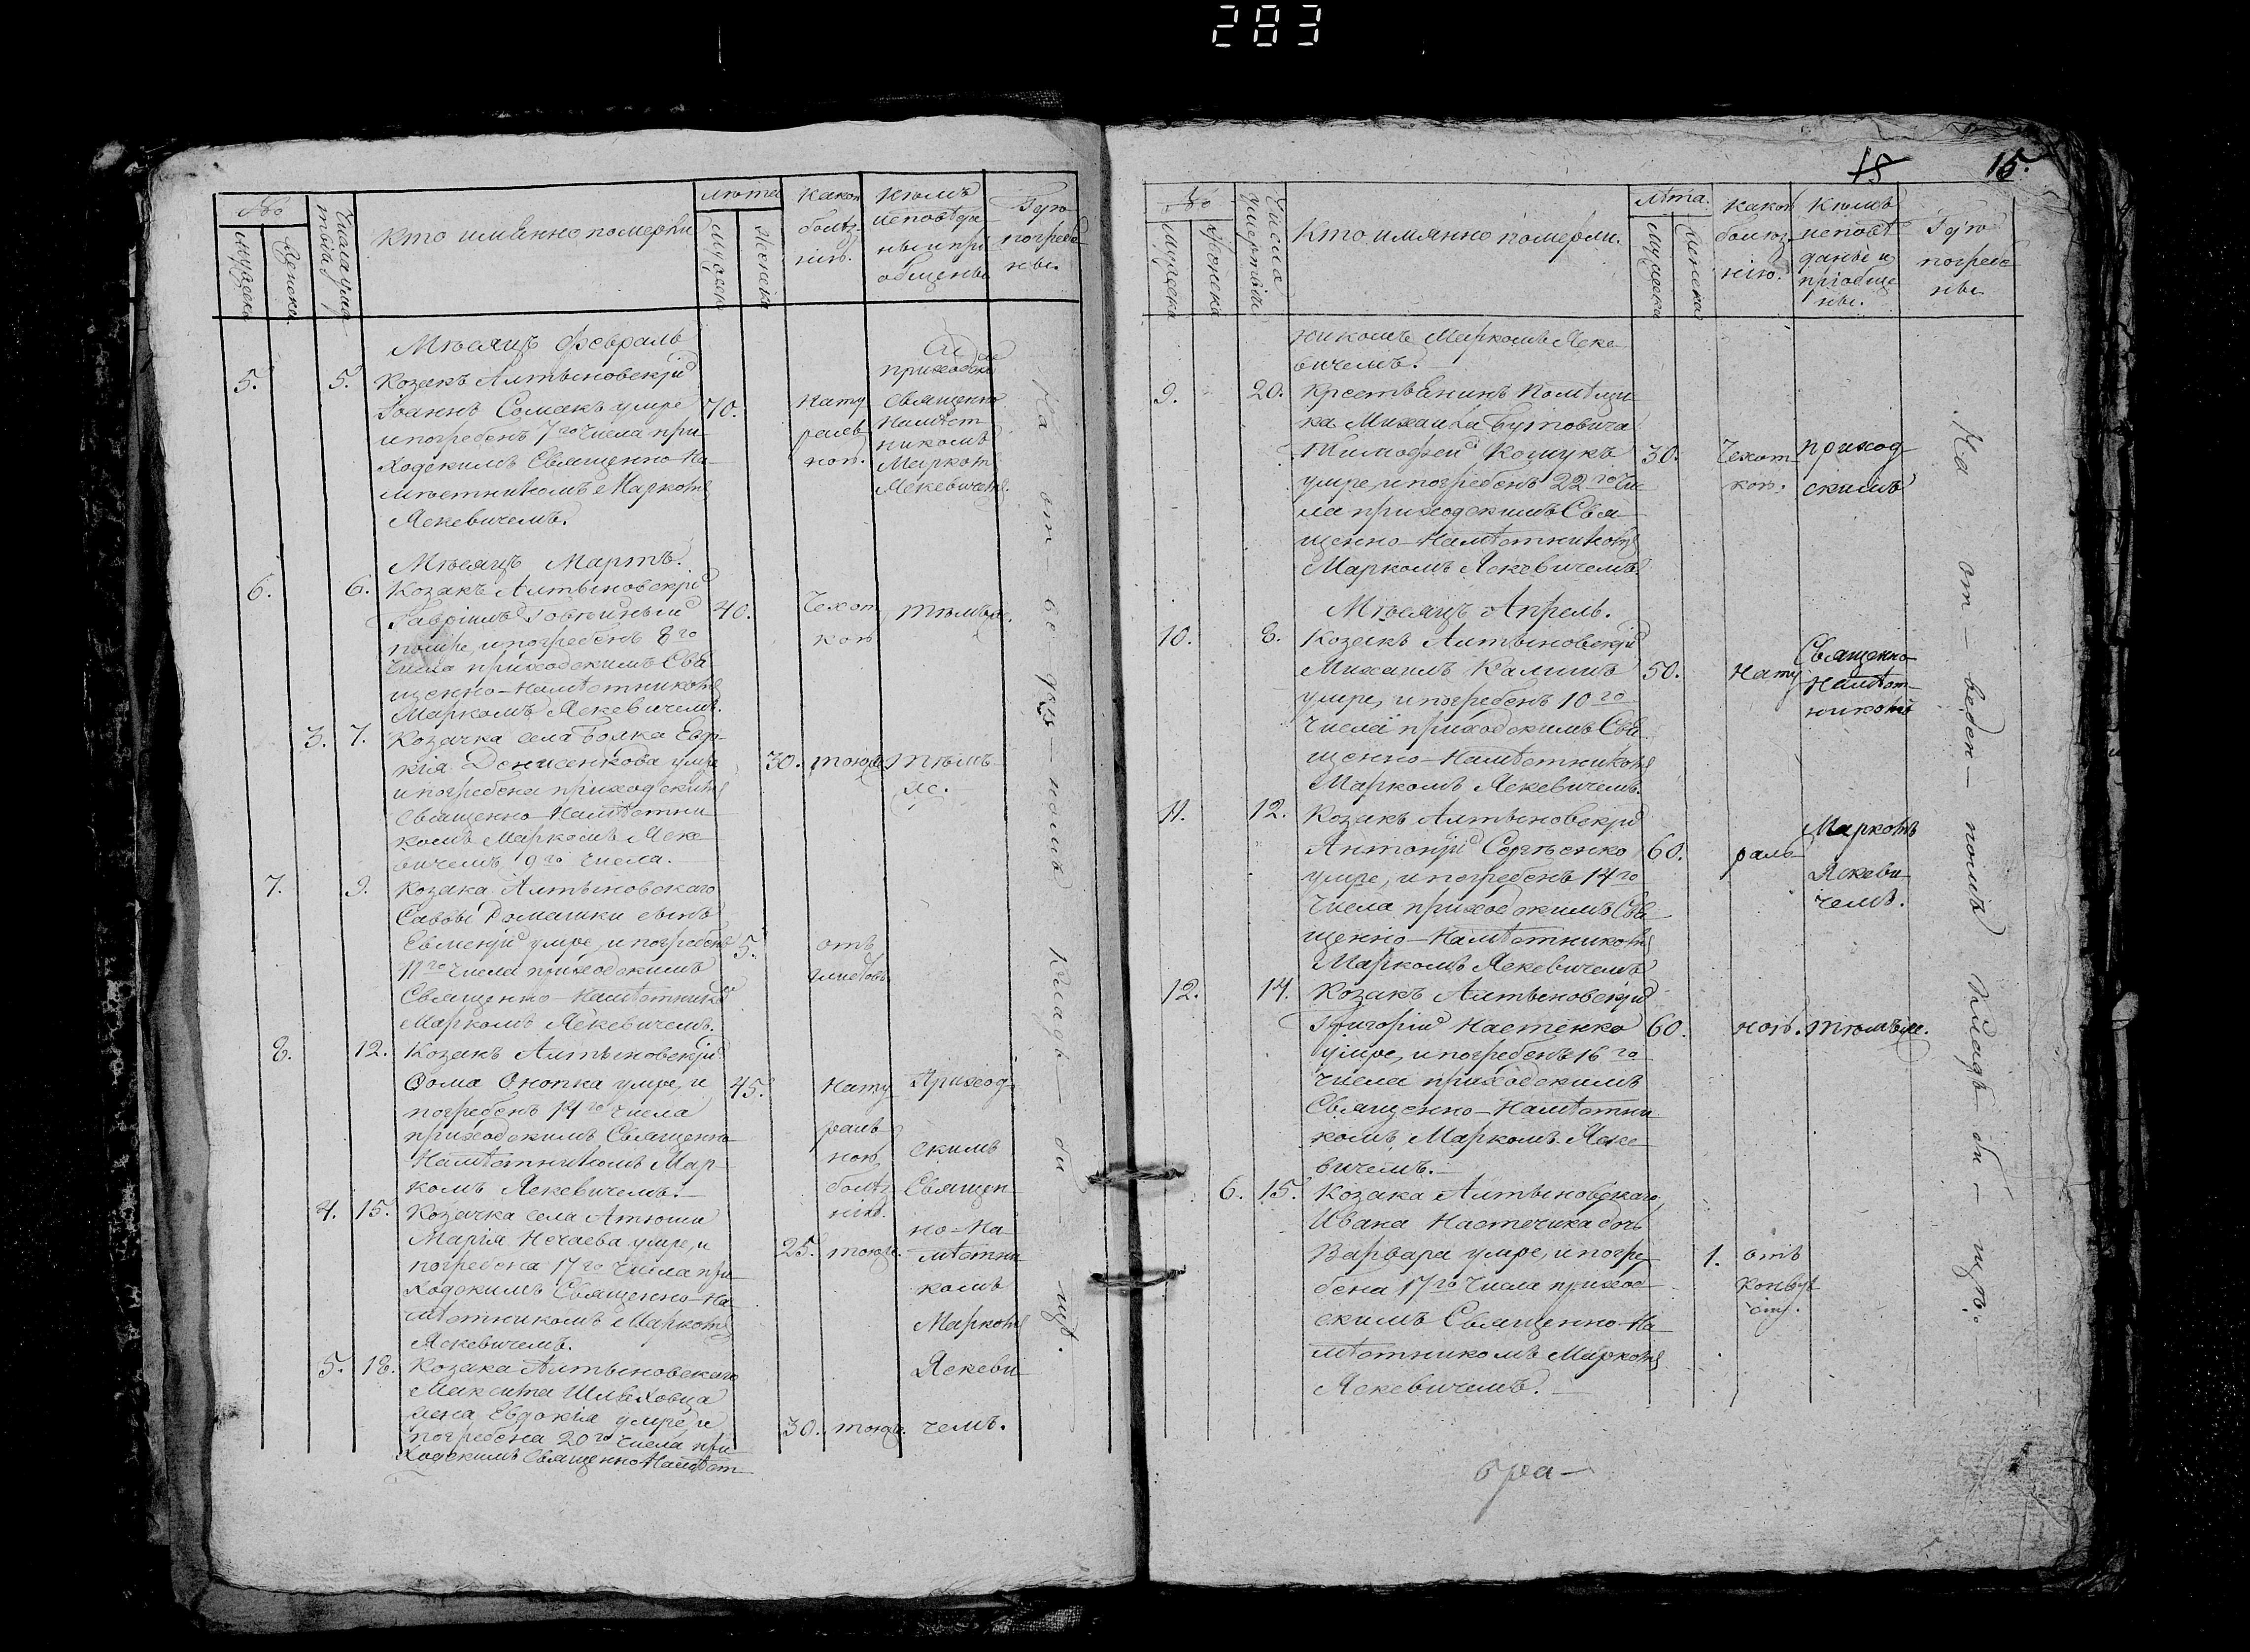 283
№
Мужеска
Женска
Числа умер
твія
Кто имянно померли
лѣта
Мужеск
Женска
какою
болѣз
нію.
Кѣмъ
исповѣда
ны и при
общены
Гдѣ
погребе
ны.
Мѣсяцъ Февраль
5. 5. Козакъ Алтыновскій
Іоаннъ Сомакъ умре 70.
и погребенъ 7го числа при-
ходскимъ Священно-На-
мѣстникомъ Маркомъ
Яскевичемъ.
нату
раль
ною.
приходски
Священно
Намѣст
никомъ
Марком
Яскевичемъ.
Мѣсяцъ Мартъ.
6. 6. Козакъ Алтыновскрій
Гавріилъ 40. Чехот тѣмъже.
помре, и погребенъ 8го кою
числа приходскимъ Свя
щенно-Намѣстникомъ
Маркомъ Яскевичемъ.
3. 7. Козачка села
кія Денисенкова умре 30. тоюж тѣмъ
и погребена приходскимъ же.
Священно-Намѣстни
комъ Маркомъ Яске
вичемъ 9го числа.
7. 9. Козака Алтыновскаго
Савы Ромашки сынъ
Евменій умре, и погребенъ 5. отъ
11го числа приходскимъ глистовъ
Священно-Намѣстнико
Маркомъ Яскевичемъ.
8. 12. Козакъ Алтыновскій
Ѳома Онопка умре, и 45. Нату Приход-
погребенъ 14го числа
приходскимъ Священно
Намѣстникомъ Мар-
комъ Яскевичемъ.
раль
ною
болѣз
нію.
скимъ
Священ
но-На
мѣстни
комъ
Маркомъ
Яскеви
чемъ.
4. 15. Козачка села Атюши
Марія Нечаева умре, и 25. тоюже.
погребена 17го числа при-
ходскимъ Священно-На-
мѣстникомъ Маркомъ
Яскевичемъ.
5. 18. Козака Алтыновскаго
Максима Шляховца
жена Евдокія умре, и 30. тоюже.
погребена 20го числа при
ходскимъ Священно Намѣст-
15
15.
№
Мужеска
Женска
Числа
умертвія
Кто имянно померли.
лѣта.
Мужеска
Женска
какою
болѣз
нію.
Кѣмъ
исповѣ
даны и
пріобще
ны.
Гдѣ
погребе
ны.
никомъ Маркомъ Яске
вичемъ.
9. 20. Крестьянинъ Помѣщи-
ка Михаила Бутовича
Тимофей Кошукъ 30. Чехот приход
умре, и погребенъ 22го чис кою. скимъ
ла приходскимъ Свя-
щенно-Намѣстникомъ
Маркомъ Яскевичемъ.
Мѣсяцъ Апрель.
10. 8. Козакъ Алтыновскій
Михаилъ Калишъ 50. Нату
умре, и погребенъ 10го
числа приходскимъ Свя
щенно-Намѣстникомъ
Маркомъ Яскевичемъ.
Священно-
Намѣст-
никомъ
11. 12. Козакъ Алтыновскій
Антоній Сергѣенко 60. раль-
умре, и погребенъ 14го
числа приходскимъ Свя
щенно-Намѣстникомъ
Маркомъ Яскевичемъ
Маркомъ
Яскеви-
чемъ.
12. 14. Козакъ Алтыновскій
Григорій Настенко 60. ною. тѣмъже.
умре, и погребенъ 16го
числа приходскимъ
Священно-Намѣстни
комъ Маркомъ Яске
вичемъ.
6. 15. Козака Алтыновскаго
Ивана Настечика дочь
Варвара умре, и погре 1. отъ
бена 17го числа приход
скимъ Священно-На
мѣстникомъ Маркомъ
Яскевичемъ.
На от веден номъ кладб би щѣ.